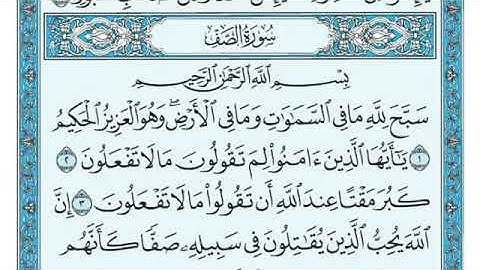 سُورَةُ الصَّفِّ
بِسْمِ اللَّهِ الرَّحْمَٰنِ الرَّحِيمِ
سَبَّحَ لِلَّهِ مَا فِي السَّمَٰوَٰتِ وَمَا فِي الْأَرْضِ ۖ وَهُوَ الْعَزِيزُ الْحَكِيمُ
١ يَٰٓأَيُّهَا الَّذِينَ ءَامَنُوا لِمَ تَقُولُونَ مَا لَا تَفْعَلُونَ ٢
كَبُرَ مَقْتًا عِندَ اللَّهِ أَن تَقُولُوا مَا لَا تَفْعَلُونَ ٣ إِنَّ
اللَّهَ يُحِبُّ الَّذِينَ يُقَٰتِلُونَ فِي سَبِيلِهِۦ صَفًّا كَأَنَّهُم